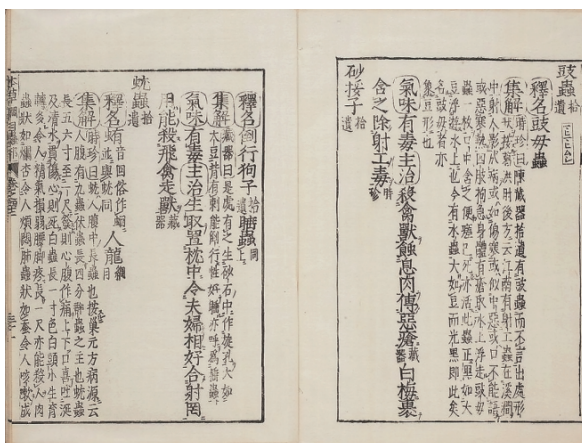 豉蟲拾遺
釋名豉母蟲
集解時珍曰陳藏器拾遺有豉蟲而不言出處形
狀按葛洪肘後方云江南有射工蟲在溪澗
中射人影成病或如傷寒或似中惡或口不能語
或惡寒熱四肢拘急身體有瘡取水上浮走豉母
蟲一枚口中含之便瘥已死亦活此蟲正黑如大
豆浮游水上也今有水蟲大如豆而光黑即此矣
名豉母者亦
象豆形也
氣味有毒主治殺禽獸蝕息肉傅惡瘡藏器白梅裹
含之除射工毒時珍
砂挼子拾遺
釋名倒行狗子拾遺睡蟲同上
集解藏器曰是處有之生砂石中作旋孔大如
大豆背有刺能倒行性好睡亦呼為睡蟲
氣味有毒主治生取置枕中令夫婦相好合射罔
用能殺飛禽走獸藏器
蚘蟲拾遺
釋名蛕音回俗作蛔並與蚘同人龍綱目
集解時珍曰蚘人腹中長蟲也按巢元方病源云
人腹有九蟲伏蟲長四分群蟲之主也蚘蟲
長五六寸至一尺發則心腹作痛上下口喜吐涎
及清水貫傷心則死白蟲長一寸色白頭小生育
轉多令人精氣損弱腰腳疼長一尺亦能殺人肉
蟲狀如爛杏令人煩悶肺蟲狀如蠶令人咳嗽成